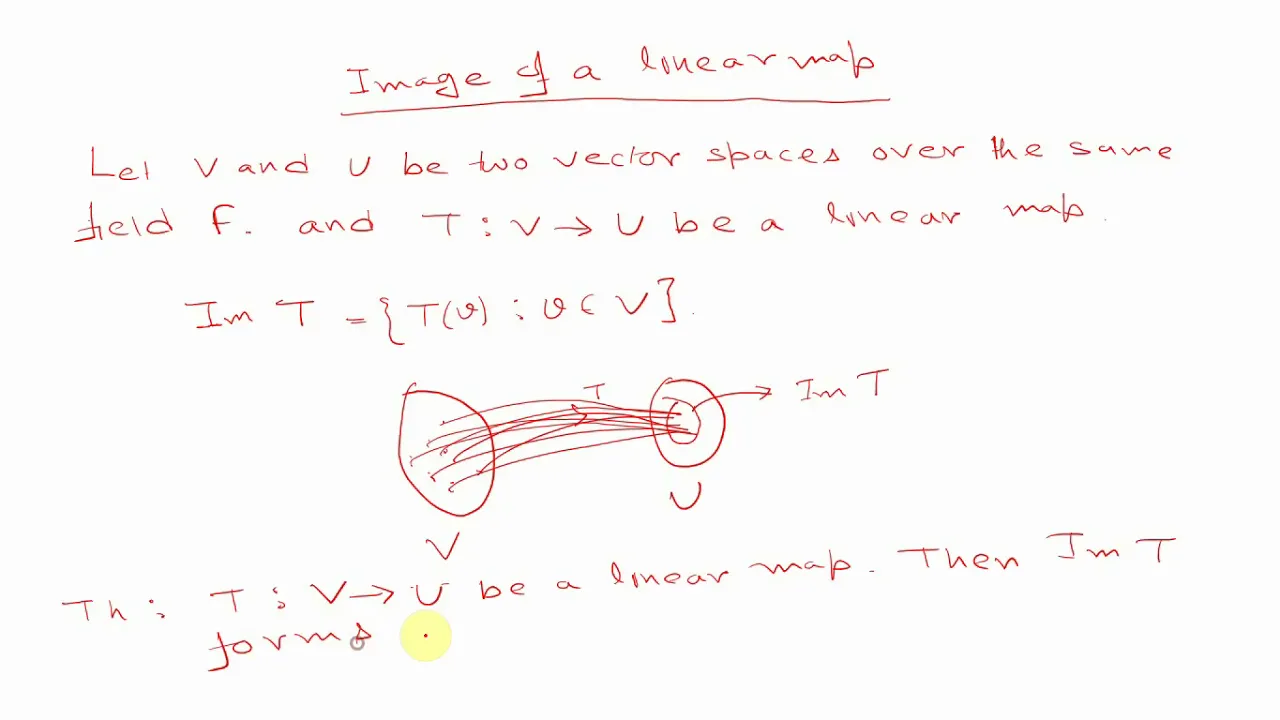 Image of a linear map
Let V and U be two vector spaces over the same
field F. and T : V → U be a linear map.
Im T = {T(v) : v ∈ V}.
T
Im T
U
V
Th : T : V → U be a linear map. Then Im T
forms